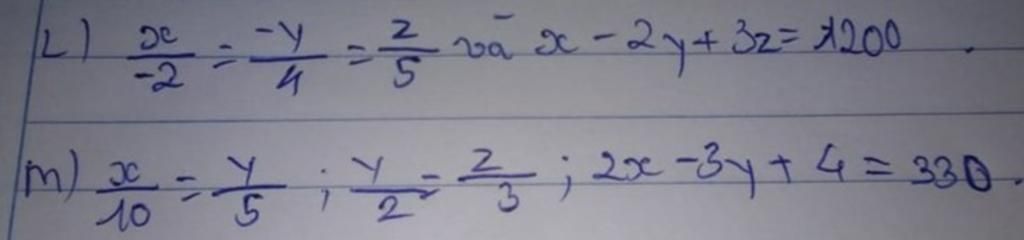 L) x/-2 = -y/4 = z/5 và x - 2y + 3z = 1200
m) x/10 = y/5 ; y/2 = z/3 ; 2x - 3y + 4 = 330.